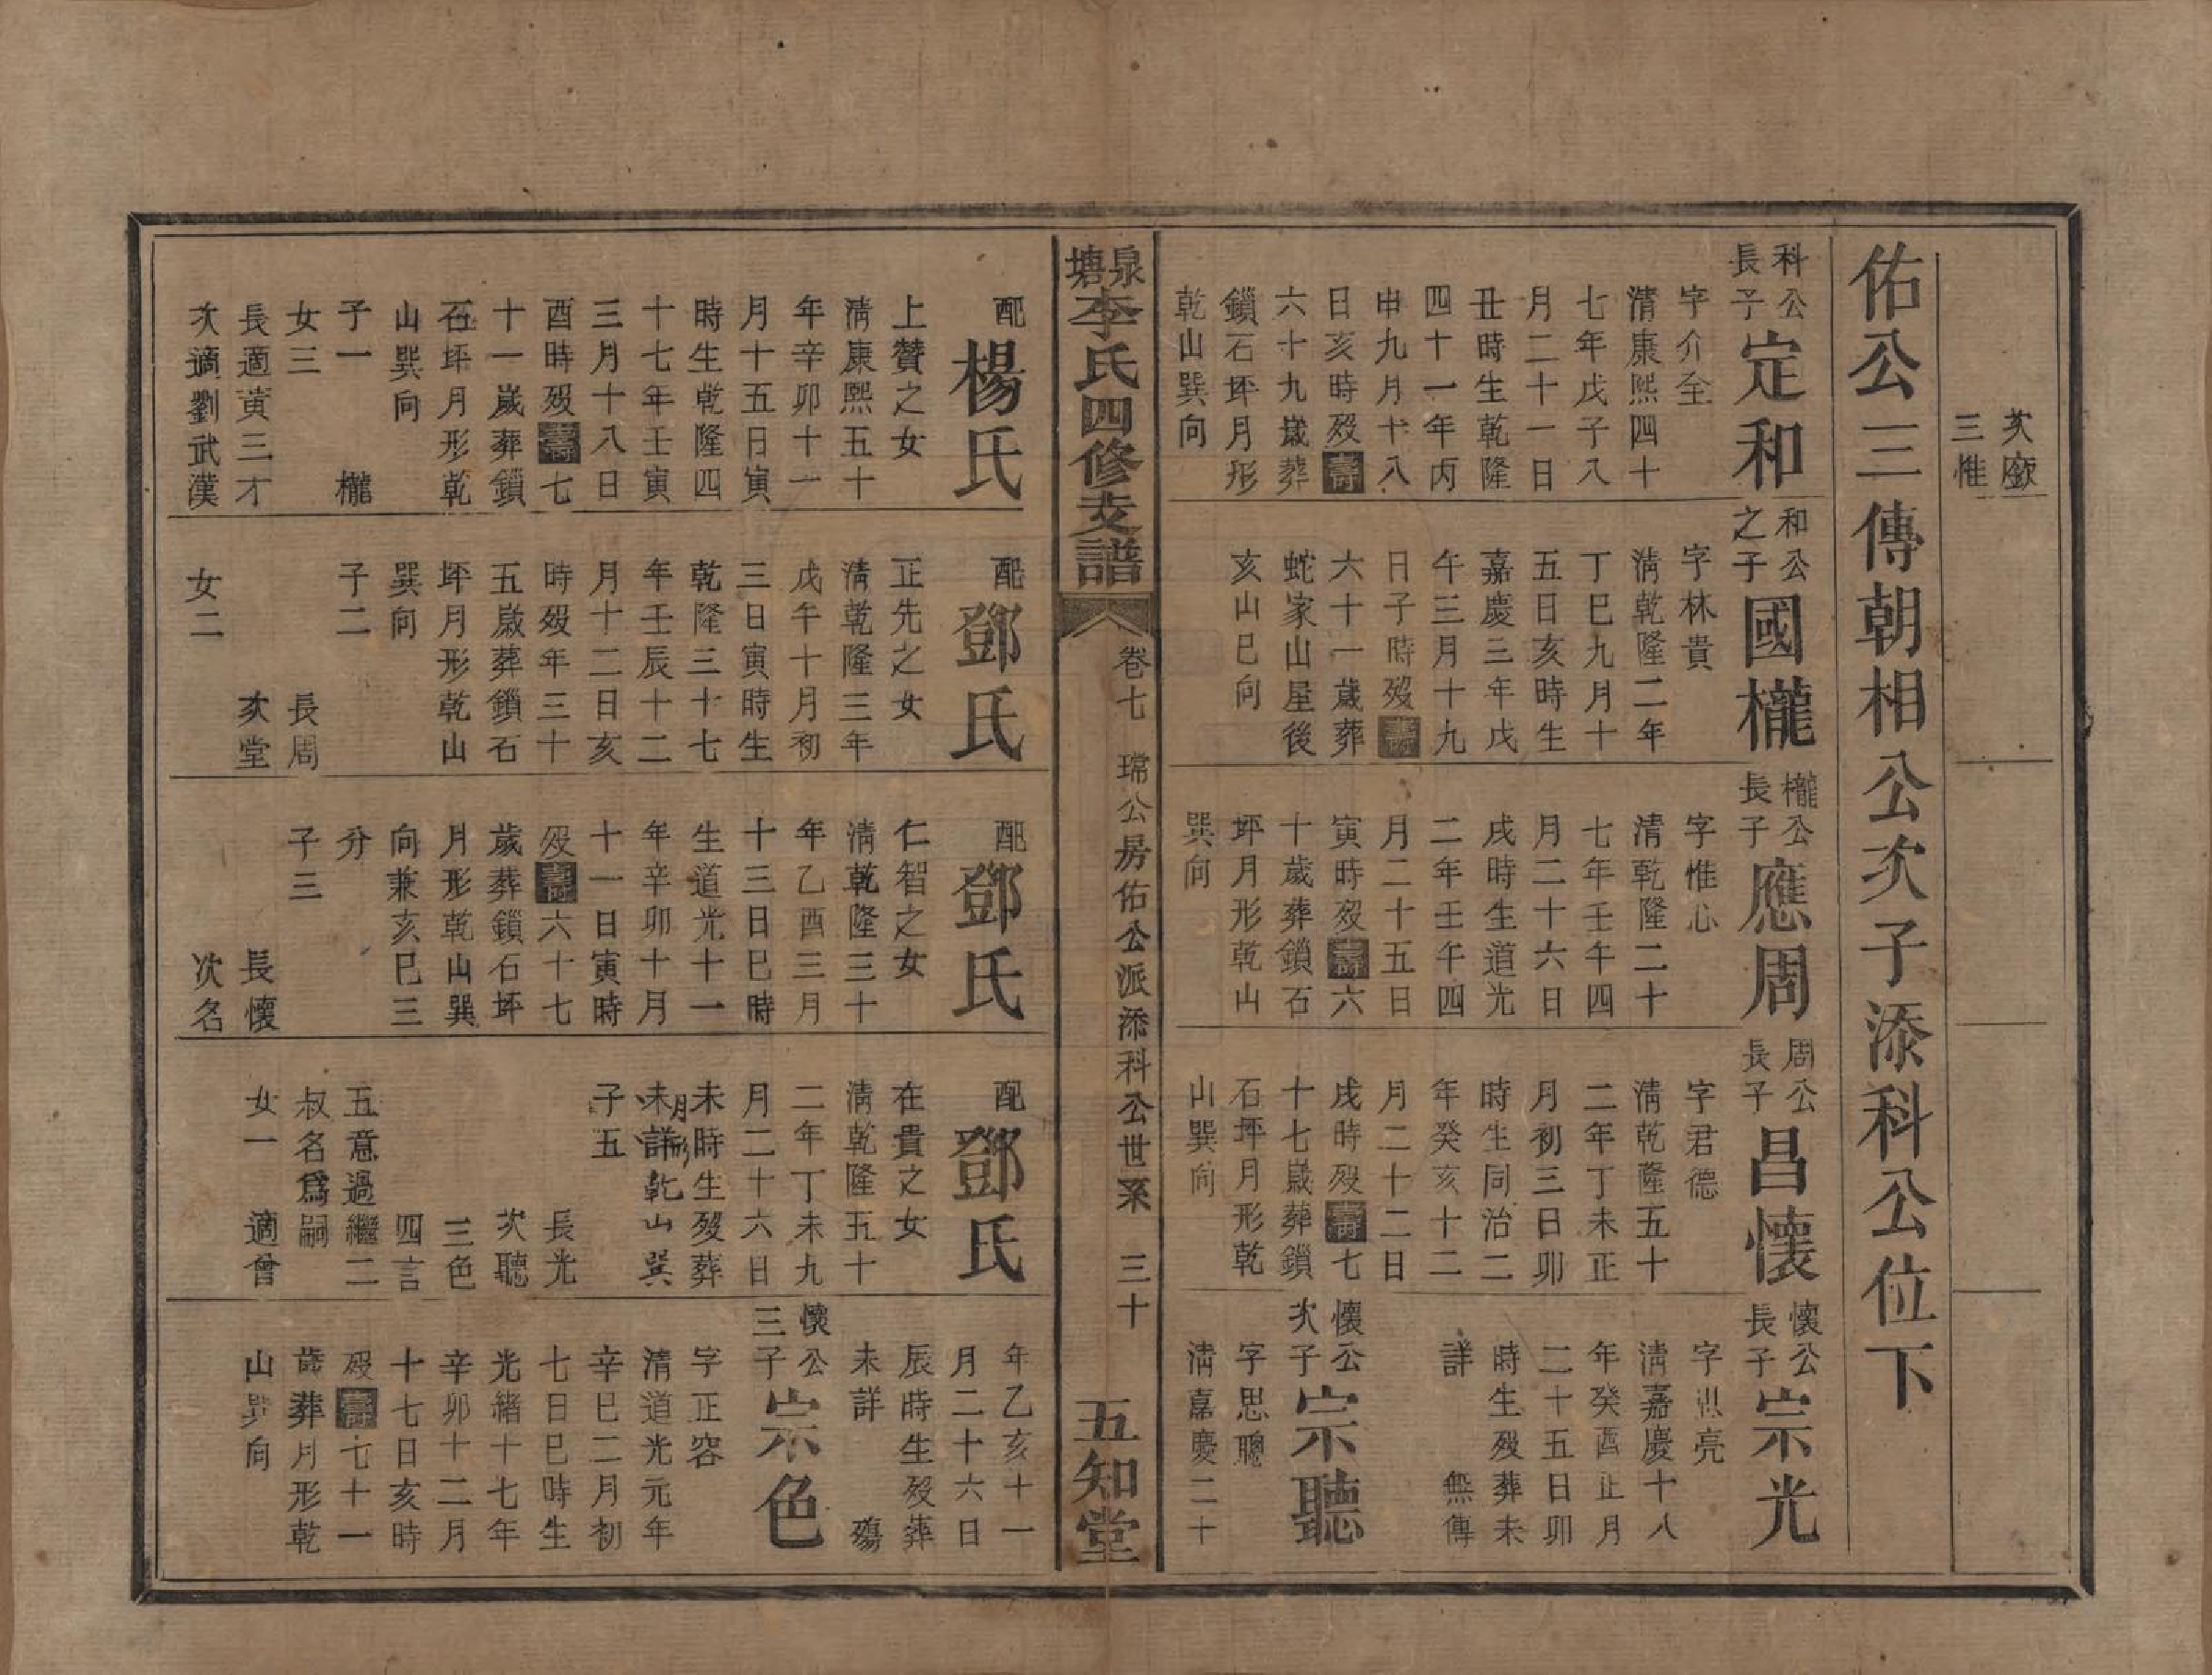 次廞
三惟
佑公三傳朝相公次子添科公位下
科公
長子
定和
字介全
清康熙四十
七年戊子八
月二十一日
丑時生乾隆
四十一年丙
申九月十八
日亥時歿壽
六十九歲葬
鎖石坪月形
乾山巽向
和公
之子
國櫳
字林貴
清乾隆二年
丁巳九月十
五日亥時生
嘉慶三年戊
午三月十九
日子時歿壽
六十一歲葬
蛇家山屋後
亥山巳向
櫳公
長子
應周
字惟心
清乾隆二十
七年壬午四
月二十六日
戌時生道光
二年壬午四
月二十五日
寅時歿壽六
十歲葬鎖石
坪月形乾山
巽向
周公
長子
昌懷
字君德
清乾隆五十
二年丁未正
月初三日卯
時生同治二
年癸亥十二
月二十二日
戌時歿壽七
十七歲葬鎖
石坪月形乾
山巽向
懷公
長子
宗光
字思亮
清嘉慶十八
年癸酉正月
二十五日卯
時生歿葬未
詳 無傳
懷公
次子
宗聽
字思聰
清嘉慶二十
泉塘
李氏四修支譜
卷七 瑺公房佑公派添科公世系 三十
五知堂
配
楊氏
上贊之女
清康熙五十
年辛卯十一
月十五日寅
時生乾隆四
十七年壬寅
三月十八日
酉時歿壽七
十一歲葬鎖
石坪月形乾
山巽向
子一 櫳
女三
長適黃三才
次適劉武漢
配
鄧氏
正先之女
清乾隆三年
戊午十月初
三日寅時生
乾隆三十七
年壬辰十二
月十二日亥
時歿年三十
五歲葬鎖石
坪月形乾山
巽向
子二
長周
次堂
女二
配
鄧氏
仁智之女
清乾隆三十
年乙酉三月
十三日巳時
生道光十一
年辛卯十月
十一日寅時
歿壽六十七
歲葬鎖石坪
月形乾山巽
向兼亥巳三
分
子三
長懷
次名
配
鄧氏
在貴之女
清乾隆五十
二年丁未九
月二十六日
未時生歿葬
月形
未詳乾山巽
子五
長光
次聽
三色
四言
五意過繼二
叔名爲嗣
女一 適曾
年乙亥十一
月二十六日
辰時生歿葬
未詳 殤
懷公
三子
宗色
字正容
清道光元年
辛巳二月初
七日巳時生
光緒十七年
辛卯十二月
十七日亥時
歿壽七十一
歲葬月形乾
山巽向